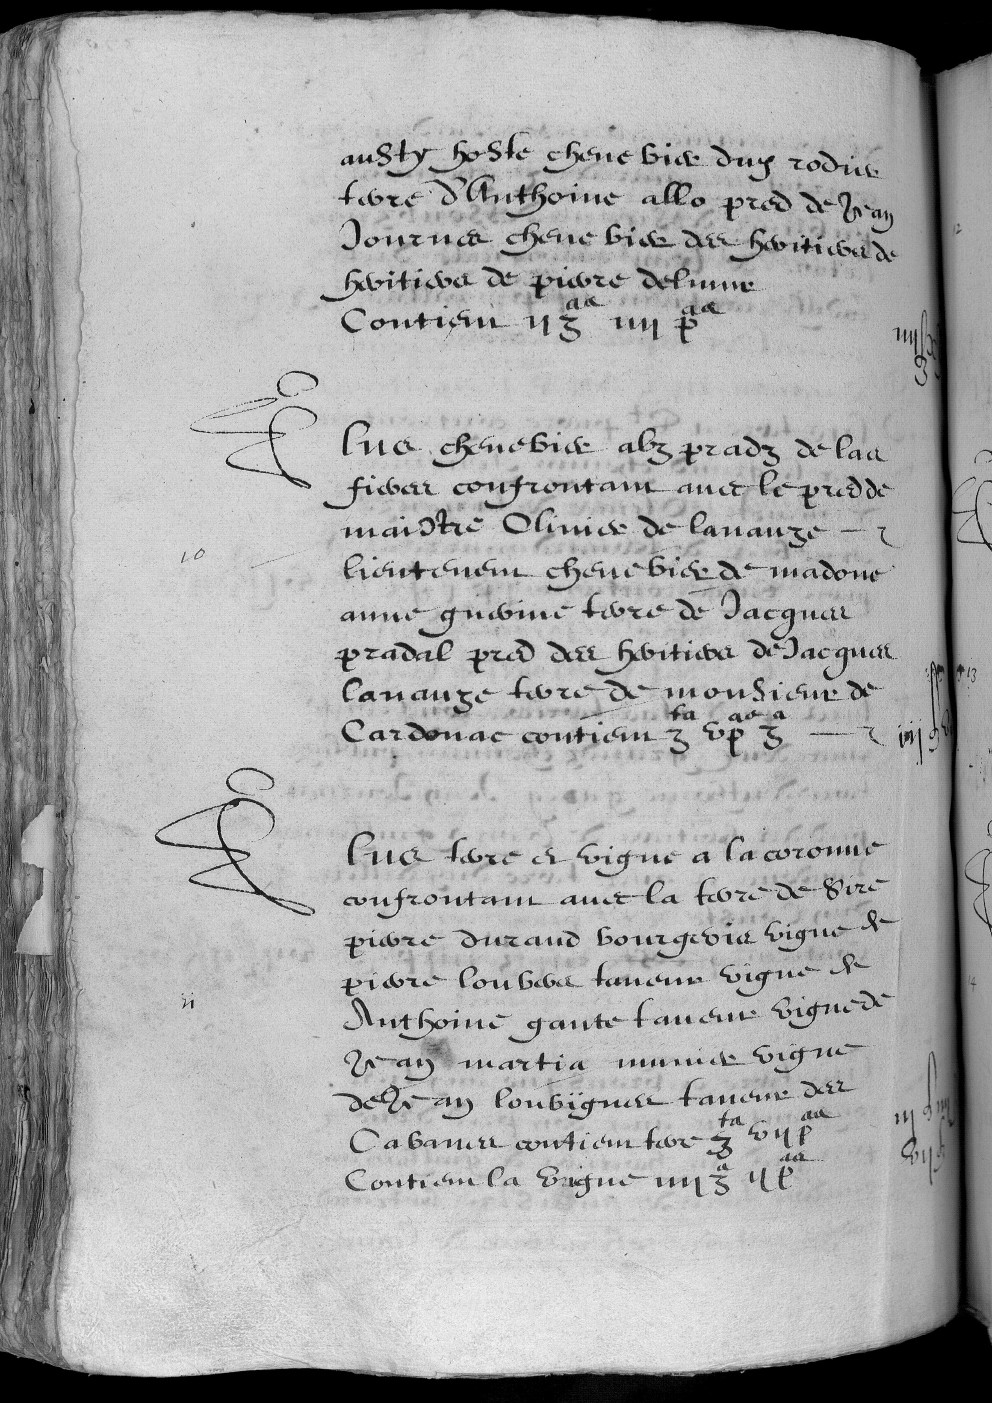 austy hoste chenevier dug rodier
terre d'Anthoine allo pred de Jean
Journes chenevier des heritiers de
heritiers de pierre delmur
Contient ii iiii p
Plus chenevier alz pradz de las
fieres confrontant avec le pred de
maistre Olivier de lanauze
lieutenent chenevier de madone
anne guerine terre de Jacques
pradal pred des heritiers de Jacques
lanauze terre de monsieur de
Cardonac contient v p
10
Plus terre et vigne a la coronne
confrontant avec la terre de sire
pierre durand bourgeois vigne de
pierre louvers taneur vigne de
Anthoine gante taneur vigne de
Jean martia munier vigne
de Jean louvignes taneur des
Cabanes contient terre vii p
Contient la vigne iiii ii p